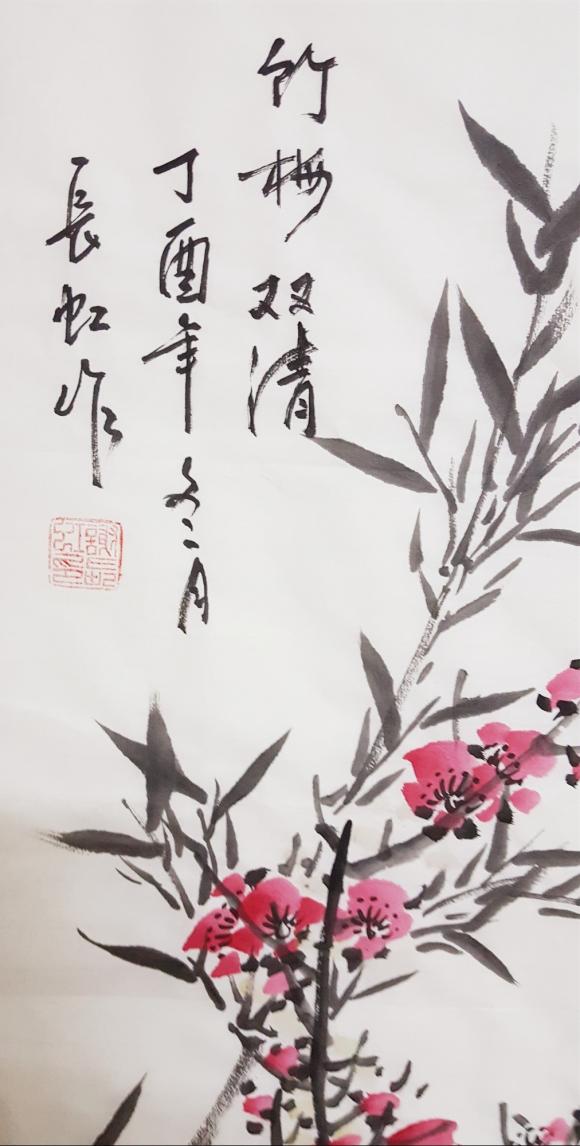 竹梅双清
丁酉年冬二月
長虹作